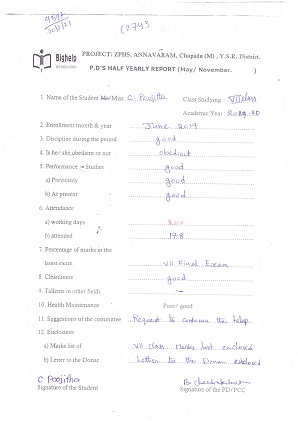 Bighelp
for education
PROJECT: ZPHS, ANNAVARAM, Chapadu (M) , Y.S.R. District.
P.D'S HALF YEARLY REPORT (May/ November. )
1. Name of the Student Mr/Miss C. Poojitha Class Studying : VII class
Academic Year :
2. Enrollment month & year June 2019
3. Discipline during the period good
4. Is he/ she obedient or not obedient
5. Performance – Studies good
a) Previously good
b) At present good
6. Attendance
a) working days
b) attended 178
7. Percentage of marks in the
latest exam VII Final Exam
8. Cleanliness good
9. Talents in other fields –
10. Health Maintenance Poor/ good
11. Suggestions of the committee Request to continue the help.
12. Enclosures
a) Marks list of VII class Marks last enclosed
b) Letter to the Donar Letter to the Donar enclosed
C Poojitha
Signature of the Student Signature of the PD/PCC